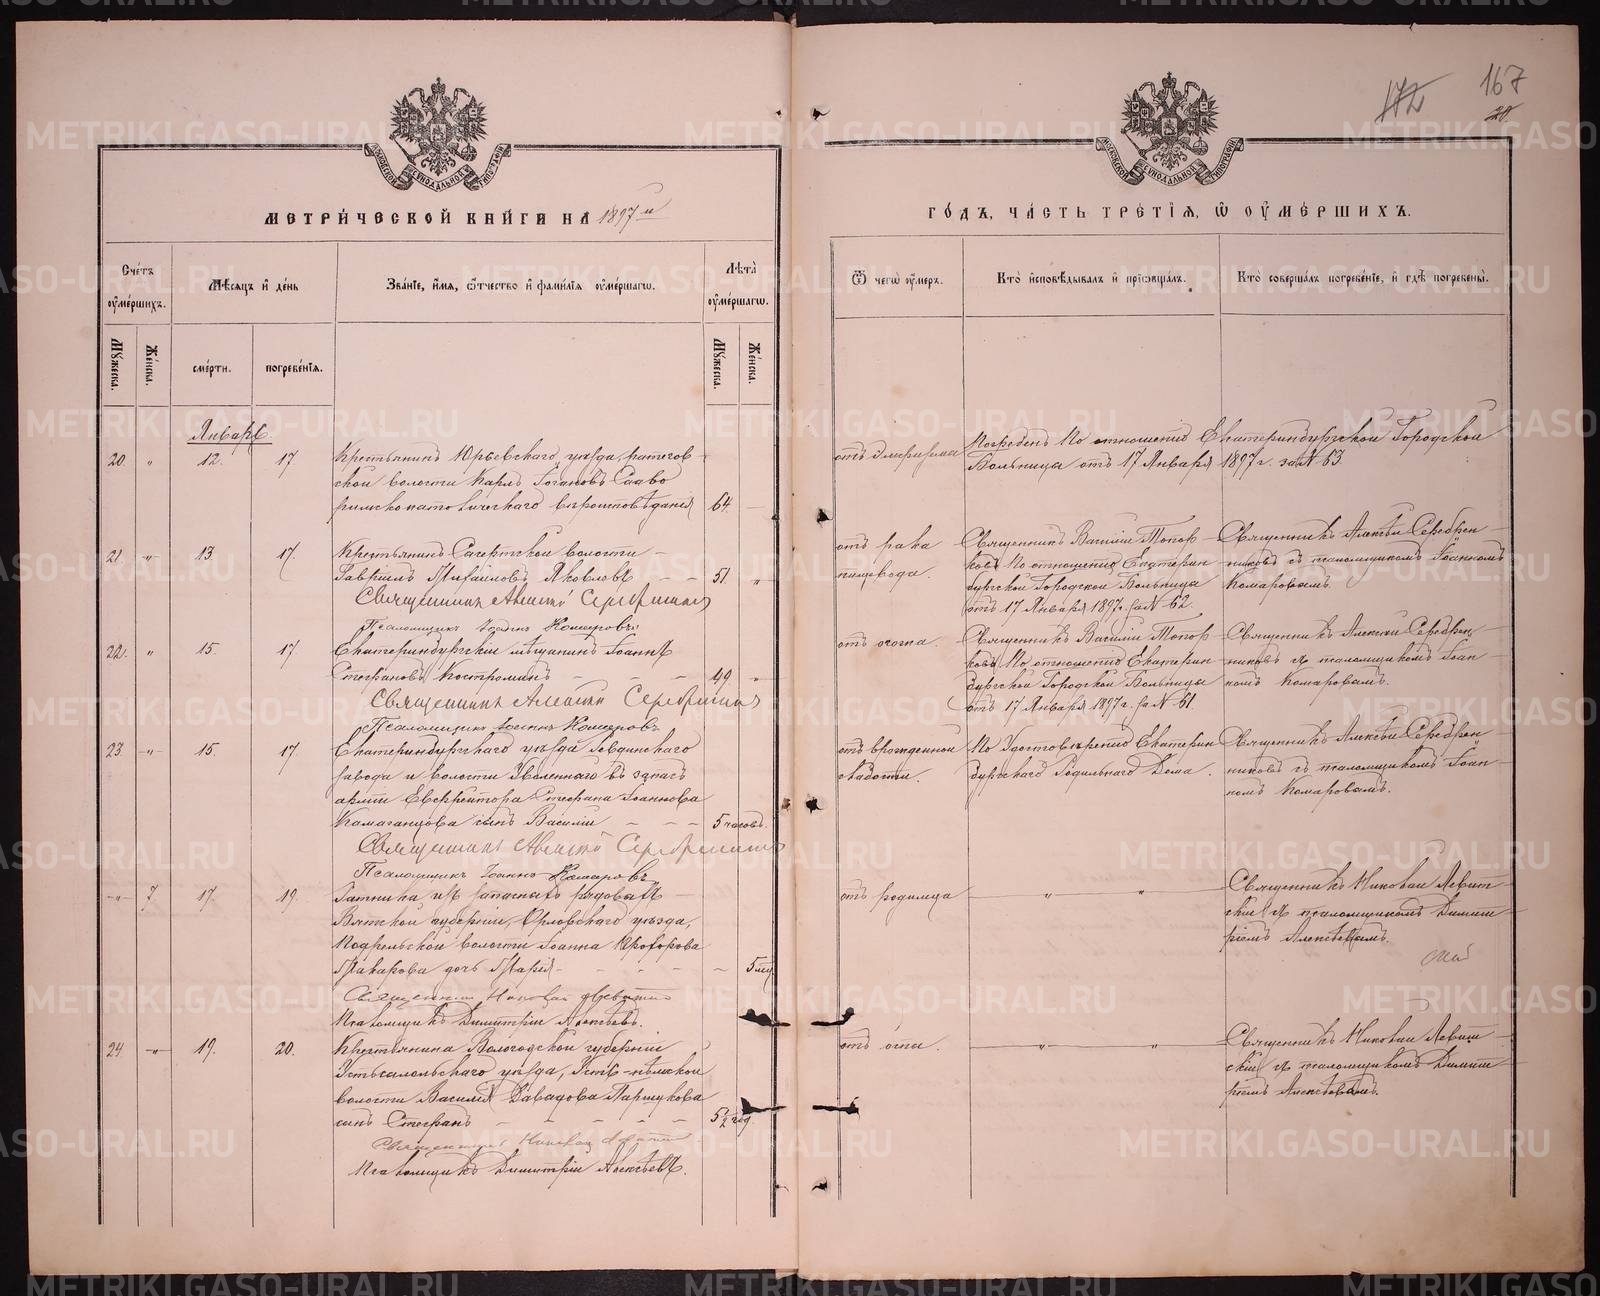 172
167
20
МОСКОВСКОЙ СѴНОДАЛЬНОЙ ТИПОГРАФІИ
МОСКОВСКОЙ СѴНОДАЛЬНОЙ ТИПОГРАФІИ
МЕТРИ́ЧЕСКОЙ КНИ́ГИ НА 1897 й
ГО́ДЪ, ЧА́СТЬ ТРЕ́ТІЯ, Ѿ ОУМЕ́РШИХЪ.
Сче́тъ оуме́ршихъ.
Мѣ́сяцъ и де́нь
Зва́ніе, и́мя, ѻ҆́тчество и фами́лія оуме́ршагѡ.
Лѣта̀ оуме́ршагѡ.
Ѿ чегѡ̀ оу́меръ.
Кто̀ исповѣ́дывалъ и пріобща́лъ.
Кто̀ соверша́лъ погребе́ніе, и гдѣ̀ погребены̀.
Му́жеска.
Же́нска.
сме́рти.
погребе́нія.
Му́жеска.
Же́нска.
Январь
20. " 12. 17
Крестьянинъ Юрьевскаго уѣзда,
ской волости Карлъ Іогановъ
римскокатолическаго вѣроисповѣданія
64. —
отъ эмфизема
Погребенъ по отношенію Екатеринбургской Городской
Больницы отъ 17 Января 1897 г. за № 63.
21. " 13 17.
Крестьянинъ волости
Гавріилъ Михаиловъ Яковлевъ
51. "
Священникъ Алексѣй Серебрениковъ
Псаломщикъ Іоаннъ Комаровъ
отъ рака
пищевода.
Священникъ Василій Топор-
ковъ по отношенію Екатерин-
бургской Городской Больницы
отъ 17 Января 1897 г. за № 62.
Священникъ Алексѣй Серебрен-
никовъ съ псаломщикомъ Іоанномъ
Комаровымъ.
22. " 15. 17.
Екатеринбургскій мѣщанинъ Іоаннъ
Стефановъ Костроминъ
49 "
Священникъ Алексѣй Серебрениковъ
Псаломщикъ Іоаннъ Комаровъ
отъ
Священникъ Василій Топор-
ковъ по отношенію Екатерин-
бургской Городской Больницы
отъ 17 Января 1897 г. за № 61.
Священникъ Алексѣй Серебрен-
никовъ съ псаломщикомъ Іоан-
номъ Комаровымъ.
23. " 15 17
Екатеринбургскаго уѣзда Ревдинскаго
завода и волости Уволеннаго въ запасъ
арміи Ефрейтора Стефана Іоаннова
сынъ Василій
5 часовъ.
Священникъ Алексѣй Серебрениковъ
Псаломщикъ Іоаннъ Комаровъ
отъ врожденной
слабости.
По Удостовѣренію Екатерин-
бургскаго Родильнаго Дома.
Священникъ Алексѣй Серебрен-
никовъ съ псаломщикомъ Іоан-
номъ Комаровымъ.
" 7 17. 19.
изъ запасныхъ рядовыхъ
Вятской губерніи, Орловскаго уѣзда,
волости Іоанна Прохорова
Макарова дочь Марія
5 мц.
Священникъ Николай Левитскій
Псаломщикъ Димитрій Алексѣевъ.
отъ родимца
" "
Священникъ Николай Левит-
скій съ псаломщикомъ Димит-
ріемъ Алексѣевымъ.
24. " 19. 20.
Крестьянина Вологодской губерніи
Устьсысольскаго уѣзда, Усть-нѣмской
волости Василія Давыдова Паршукова
сынъ Стефанъ
5½ год.
Священникъ Николай Левитскій
Псаломщикъ Димитрій Алексѣевъ.
отъ оспы.
" "
Священникъ Николай Левит-
скій съ псаломщикомъ Димит-
ріемъ Алексѣевымъ.
METRIKI.GASO-URAL.RU